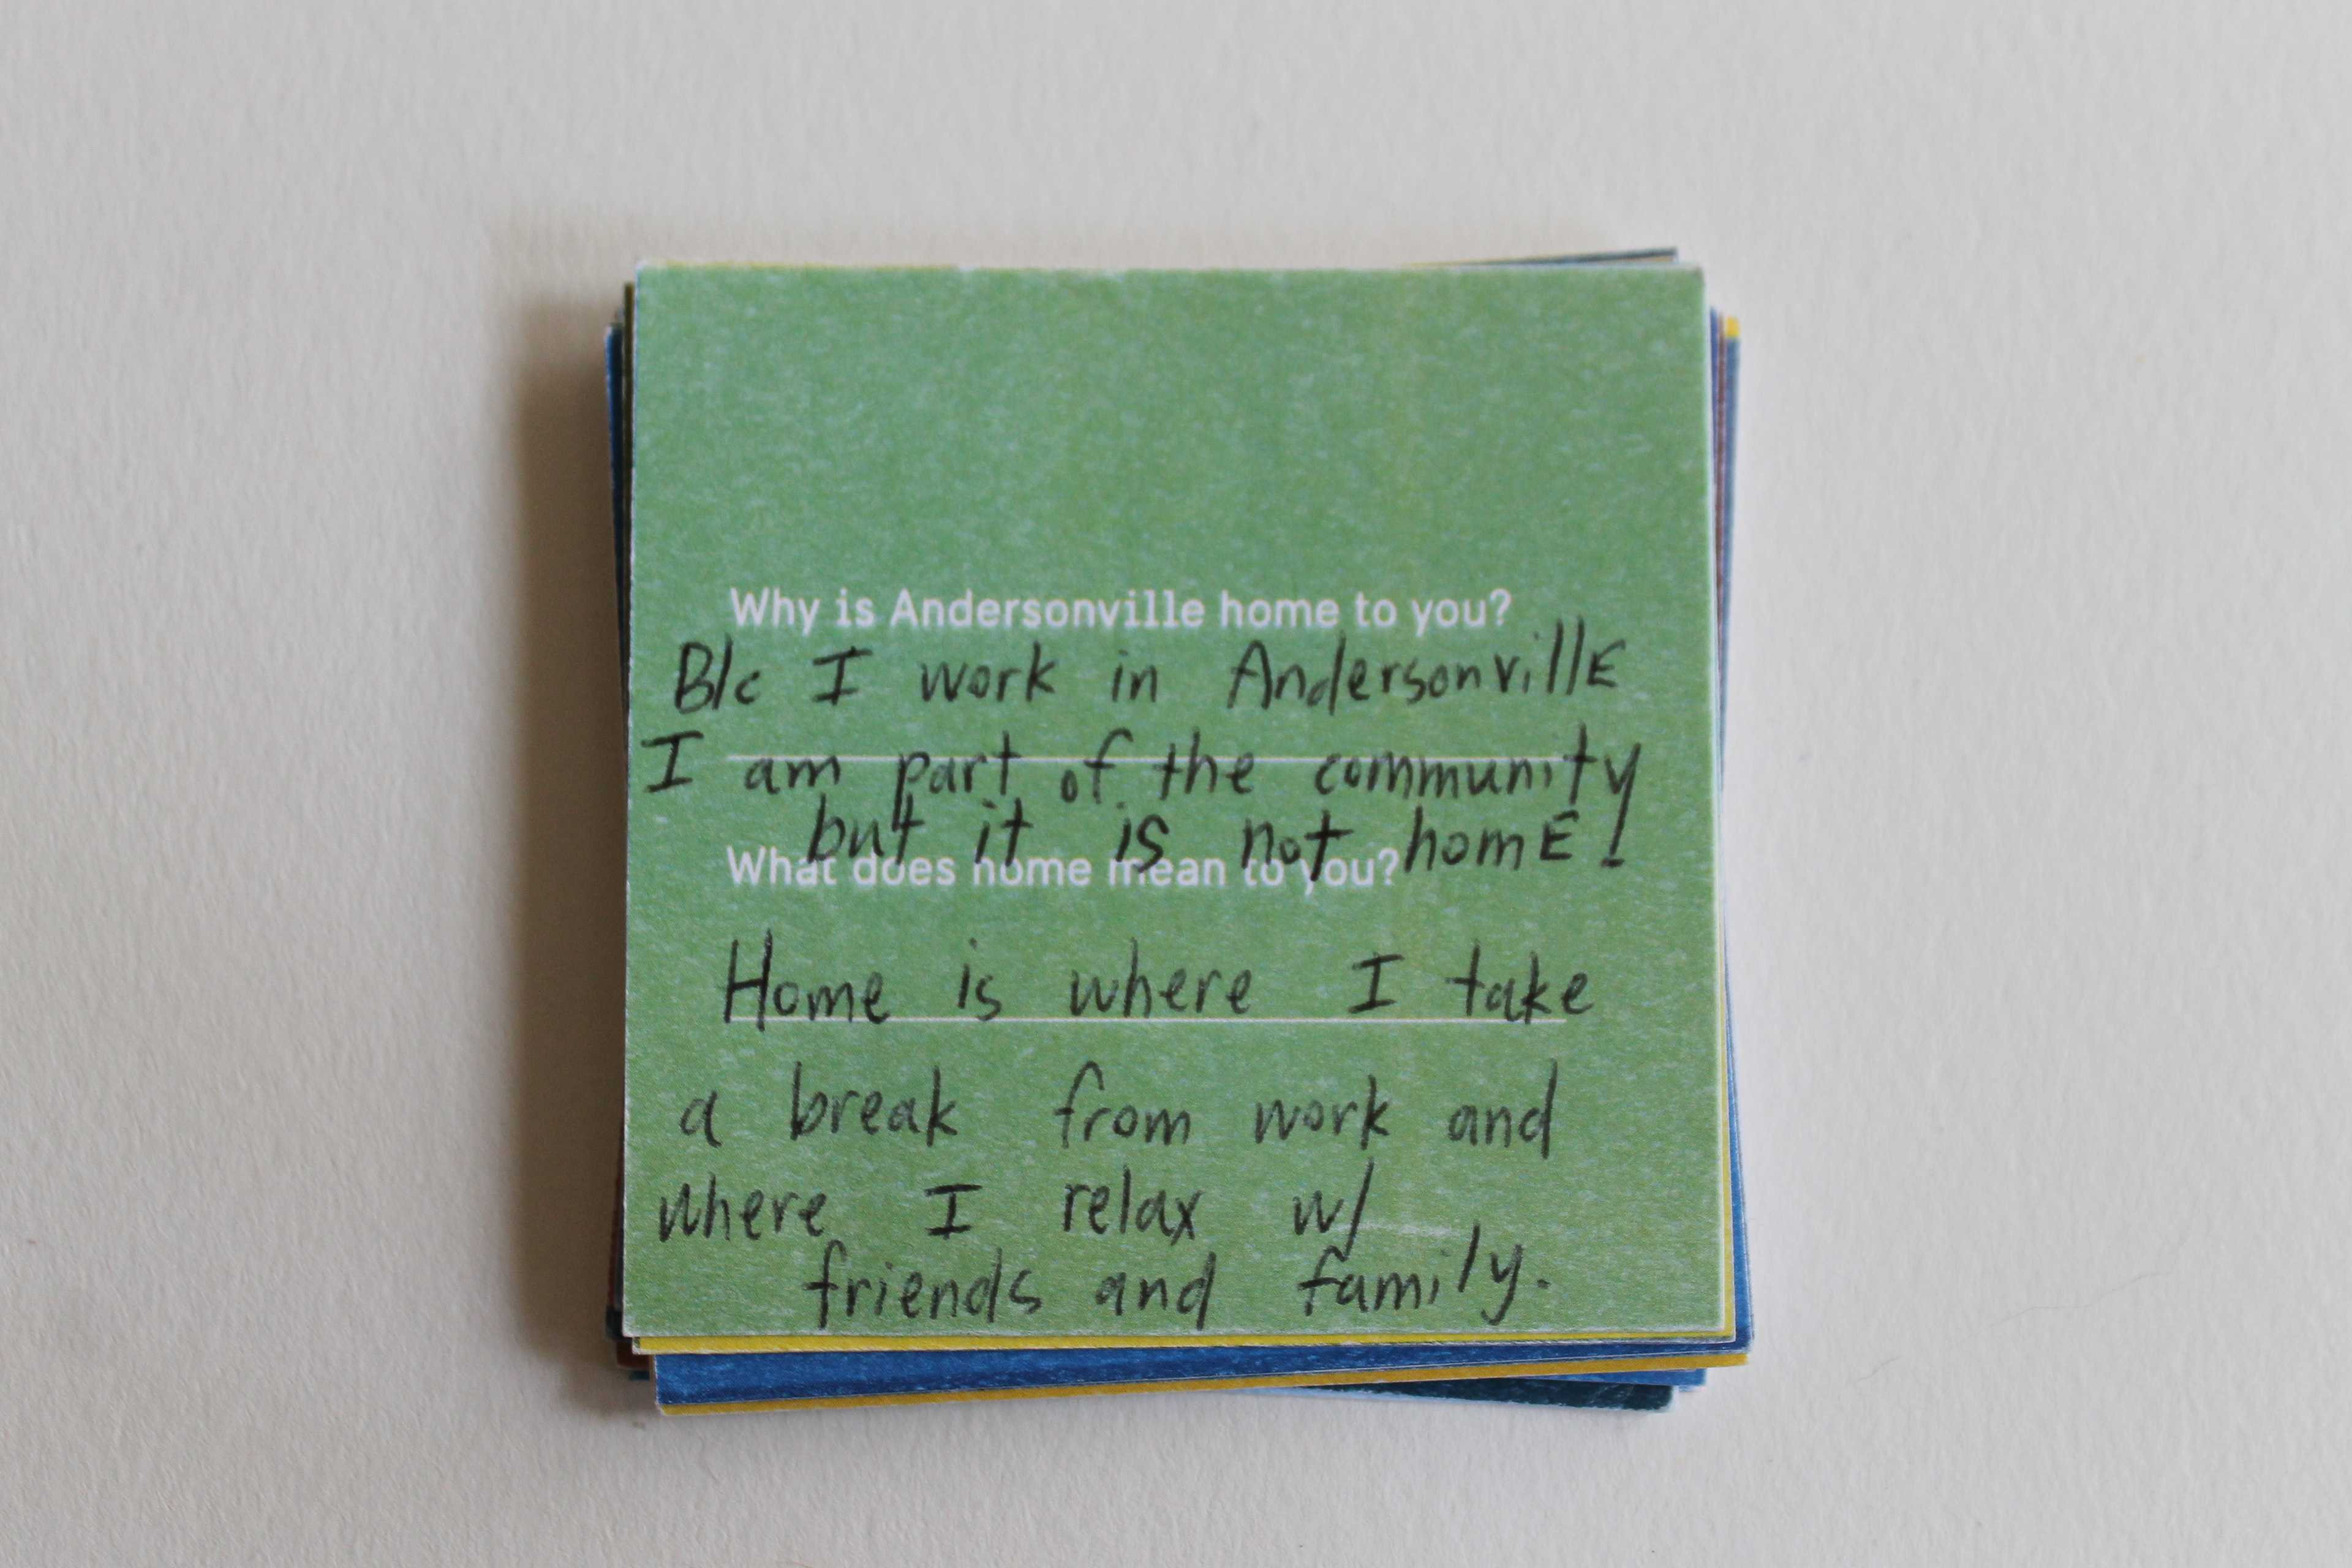 Why is Andersonville home to you?
B/c I work in AndersonvillE
I am part of the community
but it is not homE!
What does home mean to you?
Home is where I take
a break from work and
where I relax w/
friends and family.